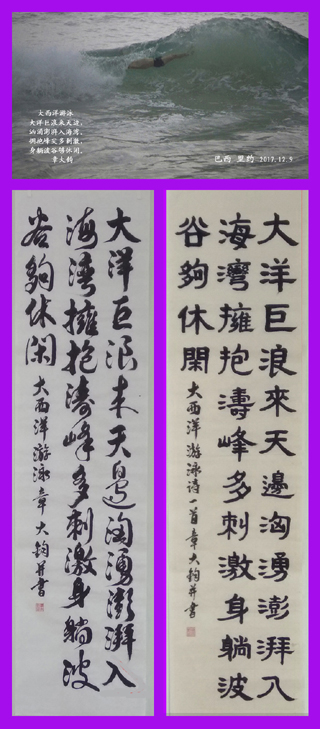 大西洋游泳
大洋巨浪来天边，
汹涌澎湃入海湾。
拥抱峰尖多刺激，
身躺波谷够休闲。
章大钧
巴西 里约 2017.12.9
大洋巨浪来天边汹涌澎湃入
海湾拥抱涛峰多刺激身躺波
谷够休闲
大西洋游泳章大钧并书
大洋巨浪來天邊洶湧澎湃入
海灣擁抱濤峰多刺激身躺波
谷夠休閑
大西洋游泳诗一首章大钧并书